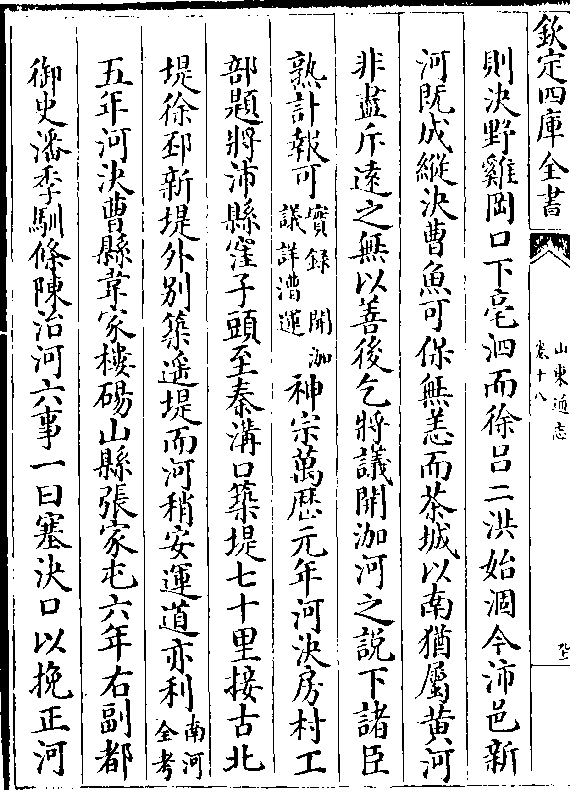 欽定四庫全書
山東通志
卷十八
則決野雞岡口下亳泗而徐吕二洪始涸今沛邑新
河既成縱決曹魚可保無恙而茶城以南猶屬黄河
非盡斥遠之無以善後乞將議開泇河之説下諸臣
熟計報可實録開泇議詳漕運神宗萬歴元年河決房村工
部題將沛縣窪子頭至秦溝口築堤七十里接古北
堤徐邳新堤外别築遥堤而河稍安運道亦利南河全考
五年河決曹縣韋家樓碭山縣張家屯六年右副都
御史潘季馴條陳治河六事一曰塞決口以挽正河